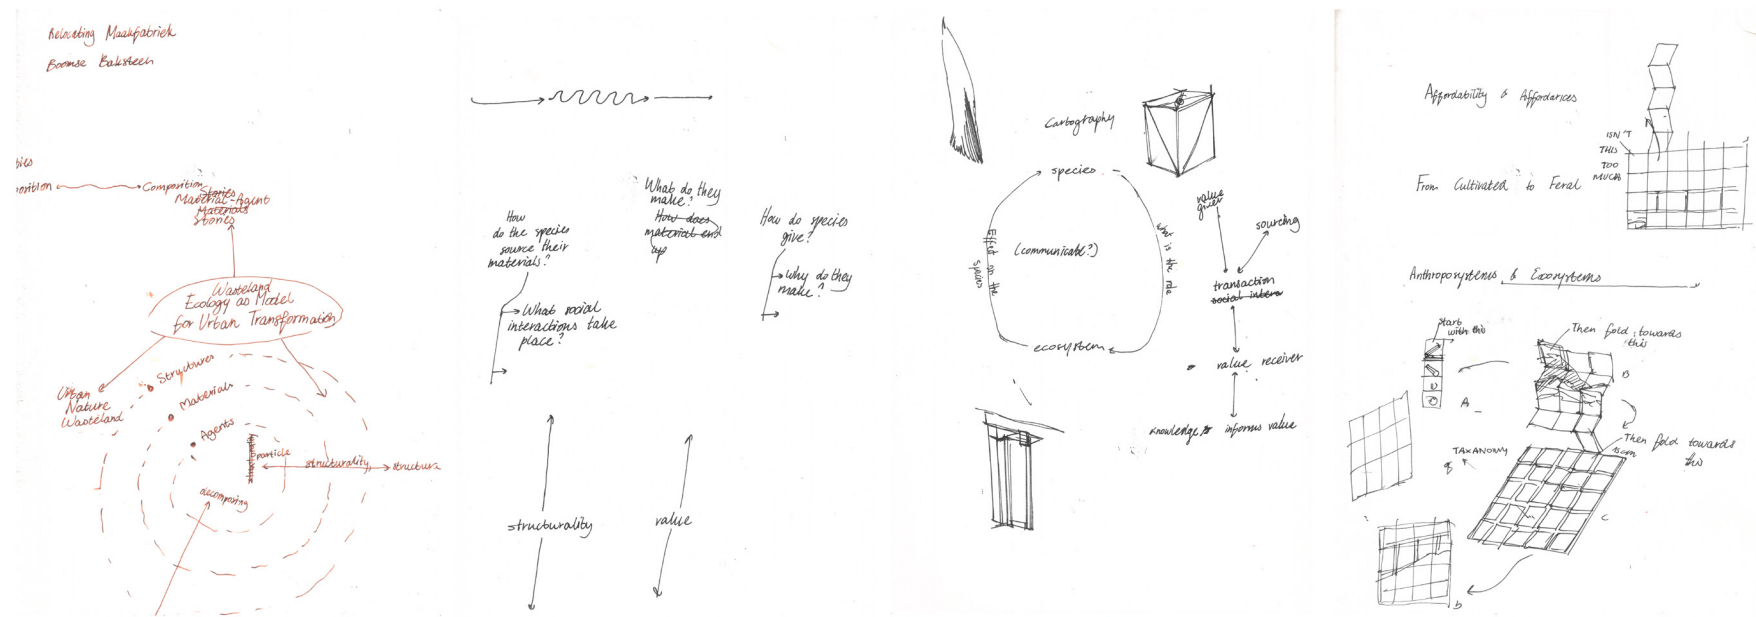 Relocating Maakfabriek
Boomse Baksteen
Composition
Stories
Material-Agent
Materials
Stories
Wasteland
Ecology as Model
for Urban Transformation
Urban
Nature
Wasteland
Structures
Materials
Agents
particle
structurality
decomposing
How
do the species
source their
materials?
What social
interactions take
place?
What do they
make?
How does
material end
up
How do species
give?
Why do they
make?
structurality
value
Cartography
species
(communicate?)
Effect on the
species
what is the role
ecosystem
value
giver
sourcing
transaction
value receiver
knowledge informs value
Affordability & Affordances
ISN'T
THIS
TOO
MUCH
From Cultivated to Feral
Anthroposystems & Ecosystems
start
with this
Then fold towards
this
A
B
Then fold towards
this
TAXANOMY
of
C
b